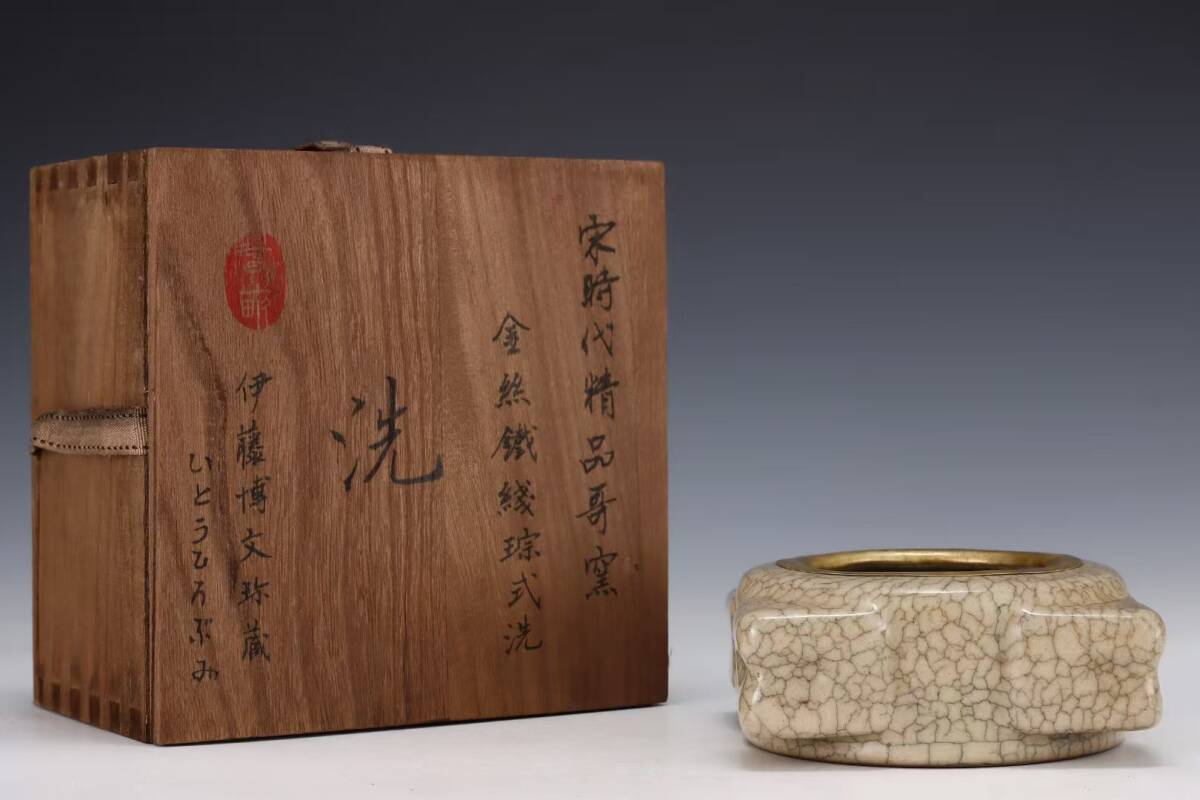 宋時代精品哥窯
金絲鐵綫琮式洗
洗
伊藤博文珎蔵
いとうひろぶみ